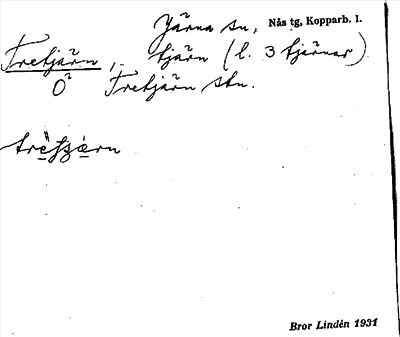 Järna sn, Nås tg, Kopparb. l.
Tretjärn, tjärn (l. 3 tjärnar)
O̊ Tretjärn stn.
Bror Lindén 1931